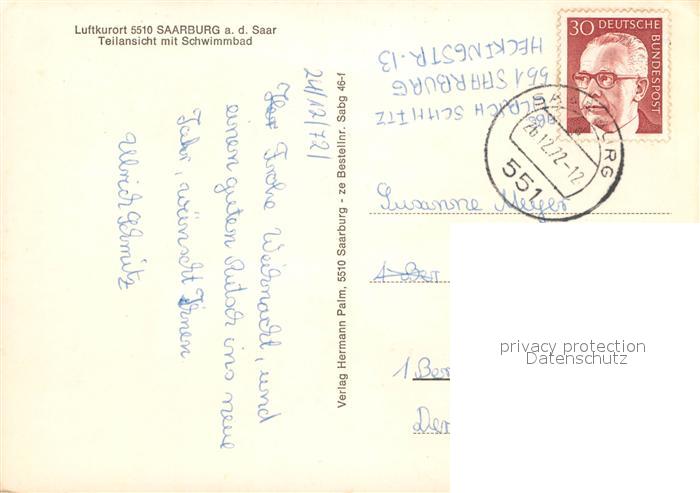 Luftkurort 5510 SAARBURG a. d. Saar
Teilansicht mit Schwimmbad
24/12/72/
Frohe Weihnacht, und
einen guten Rutsch ins neue
Jahr, wünscht Ihnen
Ulrich Schmitz
Verlag Hermann Palm, 5510 Saarburg - ze Bestellnr. Sabg 46-f
ULRICH SCHMITZ
551 SAARBURG
HECKINGSTR. 13
30 DEUTSCHE BUNDESPOST
SAARBURG
26.12.72-12
551
Susanne Meyer
1 Ber
Der
privacy protection
Datenschutz